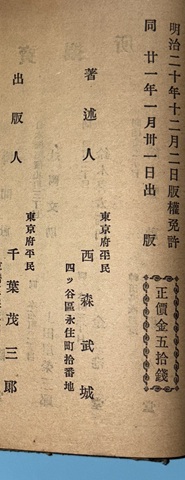 明治二十年十二月二日版權免許
同廿一年一月卅一日出版
正價金五拾錢
著述人
東京府平民
西森武城
四ッ谷區永住町拾番地
出版人
東京府平民
千葉茂三郎